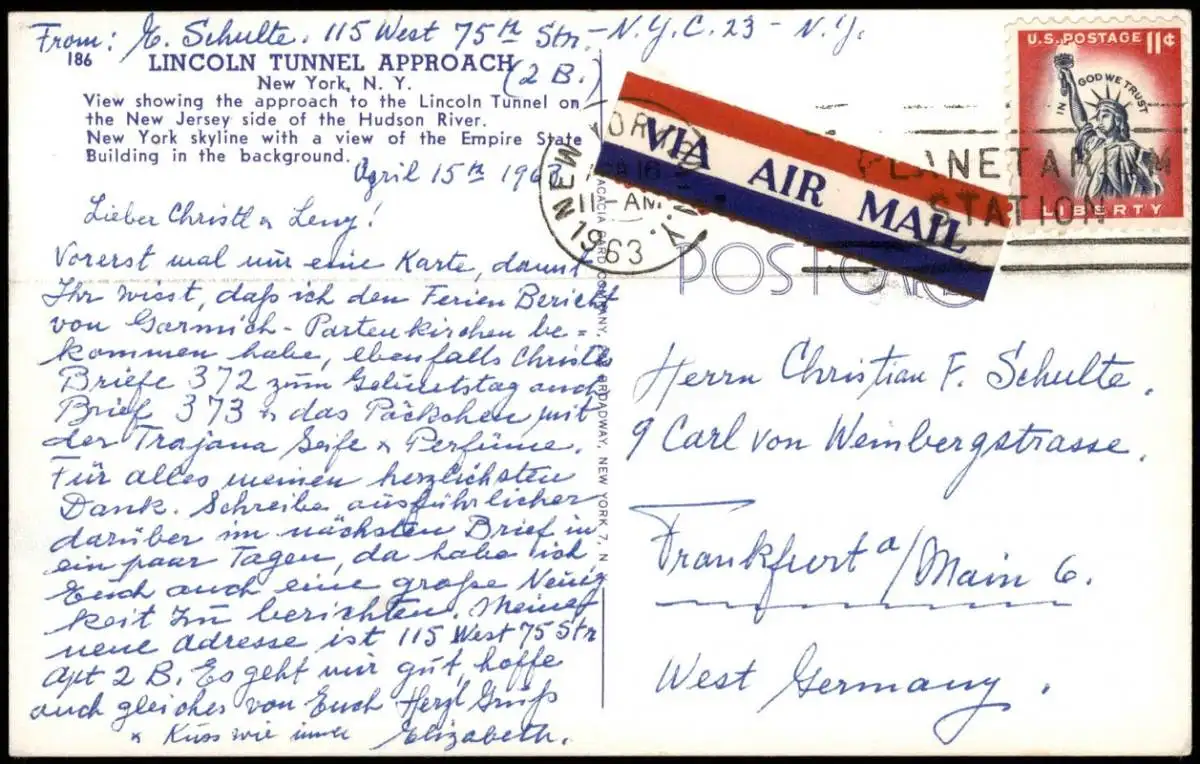 From: E. Schulte. 115 West 75th Str. - N.Y.C. 23 - N.Y.
(2 B.)
186
LINCOLN TUNNEL APPROACH
New York, N. Y.
View showing the approach to the Lincoln Tunnel on
the New Jersey side of the Hudson River.
New York skyline with a view of the Empire State
Building in the background.
April 15th 1963
Lieber Christl & Leny!
Vorerst mal nur eine Karte, damit
Ihr wisst, daß ich den Ferien Bericht
von Garmich-Partenkirchen be=
kommen habe, ebenfalls Christls
Briefe 372 zum Geburtstag auch
Brief 373 & das Päckchen mit
der Trajana Seife & Perfüme.
Für alles meinen herzlichsten
Dank. Schreibe ausführlicher
darüber im nächsten Brief in
ein paar Tagen, da habe ich
Euch auch eine große Neuig
keit zu berichten. Meine
neue Adresse ist 115 West 75 Str
Apt 2 B. Es geht mir gut, hoffe
auch gleiches von Euch Herzl Gruß
& Kuss wie immer Elizabeth.
ACACIA CARD COMPANY, BROADWAY, NEW YORK 7, N
NEW YORK, N.Y.
16
11 AM
1963
VIA AIR MAIL
PLANETARIUM
STATION
U.S. POSTAGE 11¢
IN GOD WE TRUST
LIBERTY
POSTCARD
Herrn Christian F. Schulte.
9 Carl von Weinbergstrasse.
Frankfurt a/Main 6.
West Germany.